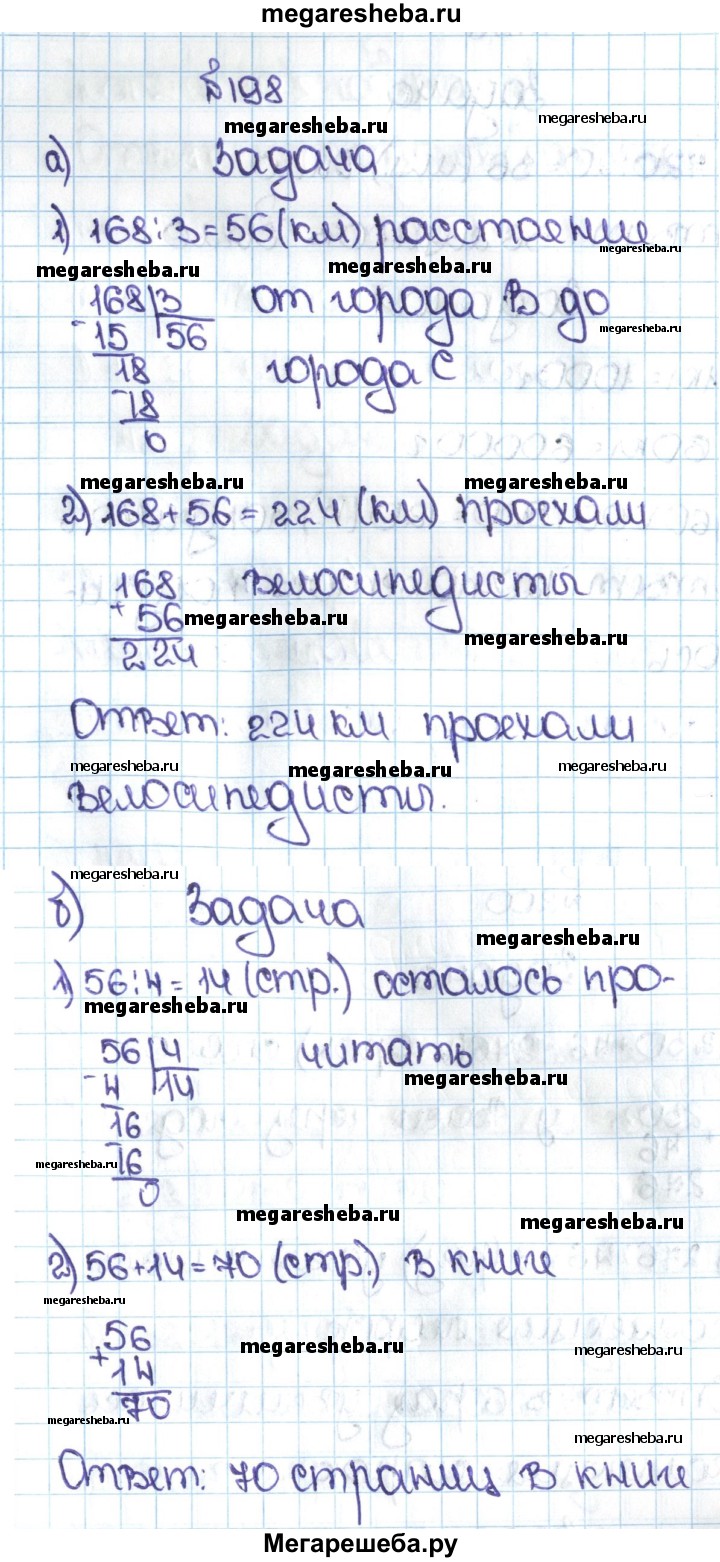 megaresheba.ru
№198
megaresheba.ru megaresheba.ru
а) Задача
1) 168:3=56(км) расстояние
megaresheba.ru
megaresheba.ru megaresheba.ru
168 3 от города В до
- 15 56 megaresheba.ru
18 города С
- 18
0
megaresheba.ru megaresheba.ru
2) 168+56=224 (км) проехали
168 велосипедисты
+ 56 megaresheba.ru
224 megaresheba.ru
Ответ: 224 км проехали
megaresheba.ru megaresheba.ru megaresheba.ru
велосипедисты.
megaresheba.ru
б) Задача
megaresheba.ru
1) 56:4=14(стр.) осталось про-
megaresheba.ru
56 4 читать
- 4 14 megaresheba.ru
16
megaresheba.ru - 16
0
megaresheba.ru megaresheba.ru
2) 56+14=70 (стр.) в книге
megaresheba.ru
56 megaresheba.ru megaresheba.ru
+ 14
70
megaresheba.ru megaresheba.ru
Ответ: 70 страниц в книге
Мегарешеба.ру